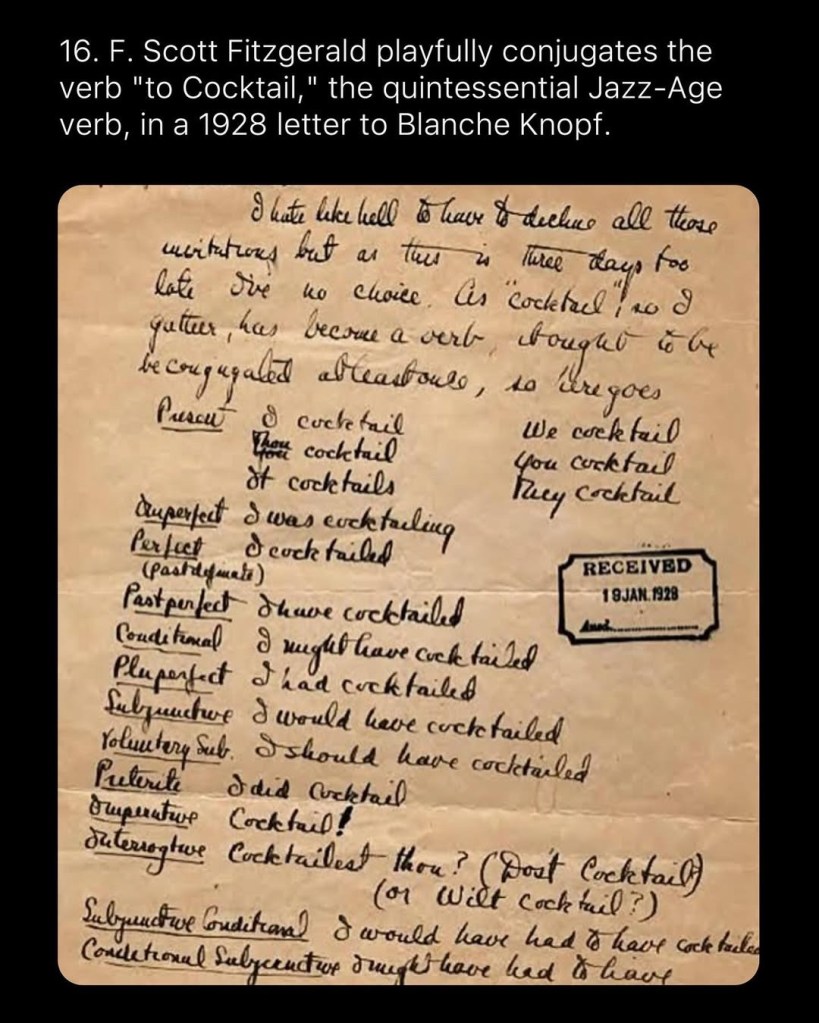 16. F. Scott Fitzgerald playfully conjugates the
verb "to Cocktail," the quintessential Jazz-Age
verb, in a 1928 letter to Blanche Knopf.
I hate like hell to have to decline all those
invitations but as this is three days too
late I've no choice. As "cocktail", so I
gather, has become a verb, it ought to be
be conjugated at least once, so here goes
Present I cocktail We cocktail
Thou cocktail You cocktail
It cocktails They cocktail
Imperfect I was cocktailing
Perfect I cocktailed
(Past definate)
RECEIVED
Past perfect I have cocktailed
JAN. 1928
Conditional I might have cocktailed
Pluperfect I had cocktailed
Subjunctive I would have cocktailed
Voluntary Sub. I should have cocktailed
Preterite I did cocktail
Imperative Cocktail!
Interrogtive Cocktailest thou? (Dos't Cocktail)
(or Wilt Cocktail?)
Subjunctive Conditional I would have had to have cocktailed
Conditional Subjunctive I might have had to have